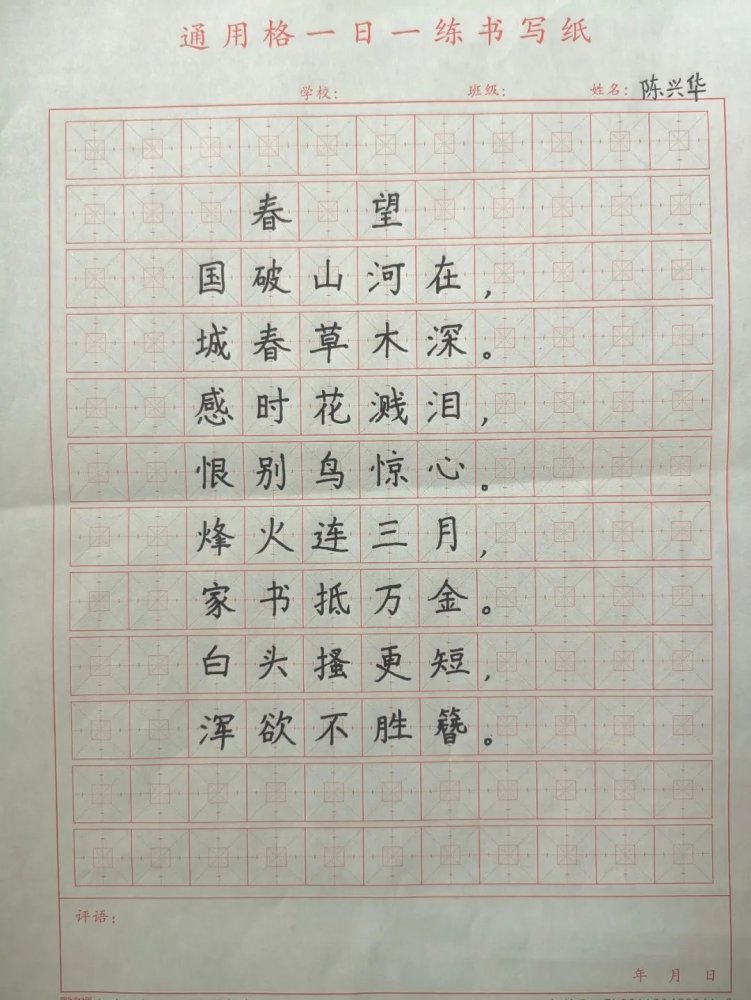 通用格一日一练书写纸
学校： 班级： 姓名：陈兴华
春望
国破山河在，
城春草木深。
感时花溅泪，
恨别鸟惊心。
烽火连三月，
家书抵万金。
白头搔更短，
浑欲不胜簪。
评语：
年 月 日